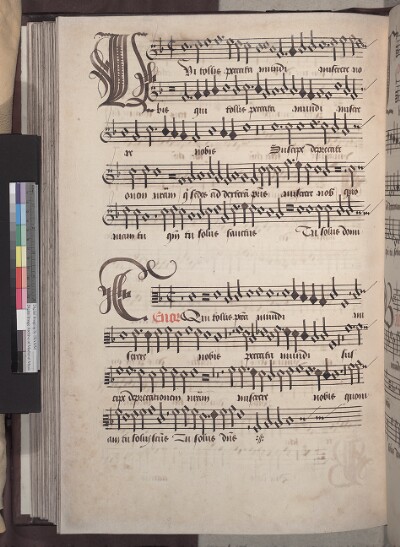 Qui tollis peccata mundi miserere no
bis qui tollis peccata mundi misere
re nobis Suscipe deprecati
onem nram q sedes ad dexteram pris miserere nob quo
niam tu qm tu solus sanctus Tu solus domi
Tenor Qui tollis pcta mundi mi
serere nobis peccata mundi sus
cipe deprecationem nram miserere nobis quoni
am tu solus scus Tu solus dns